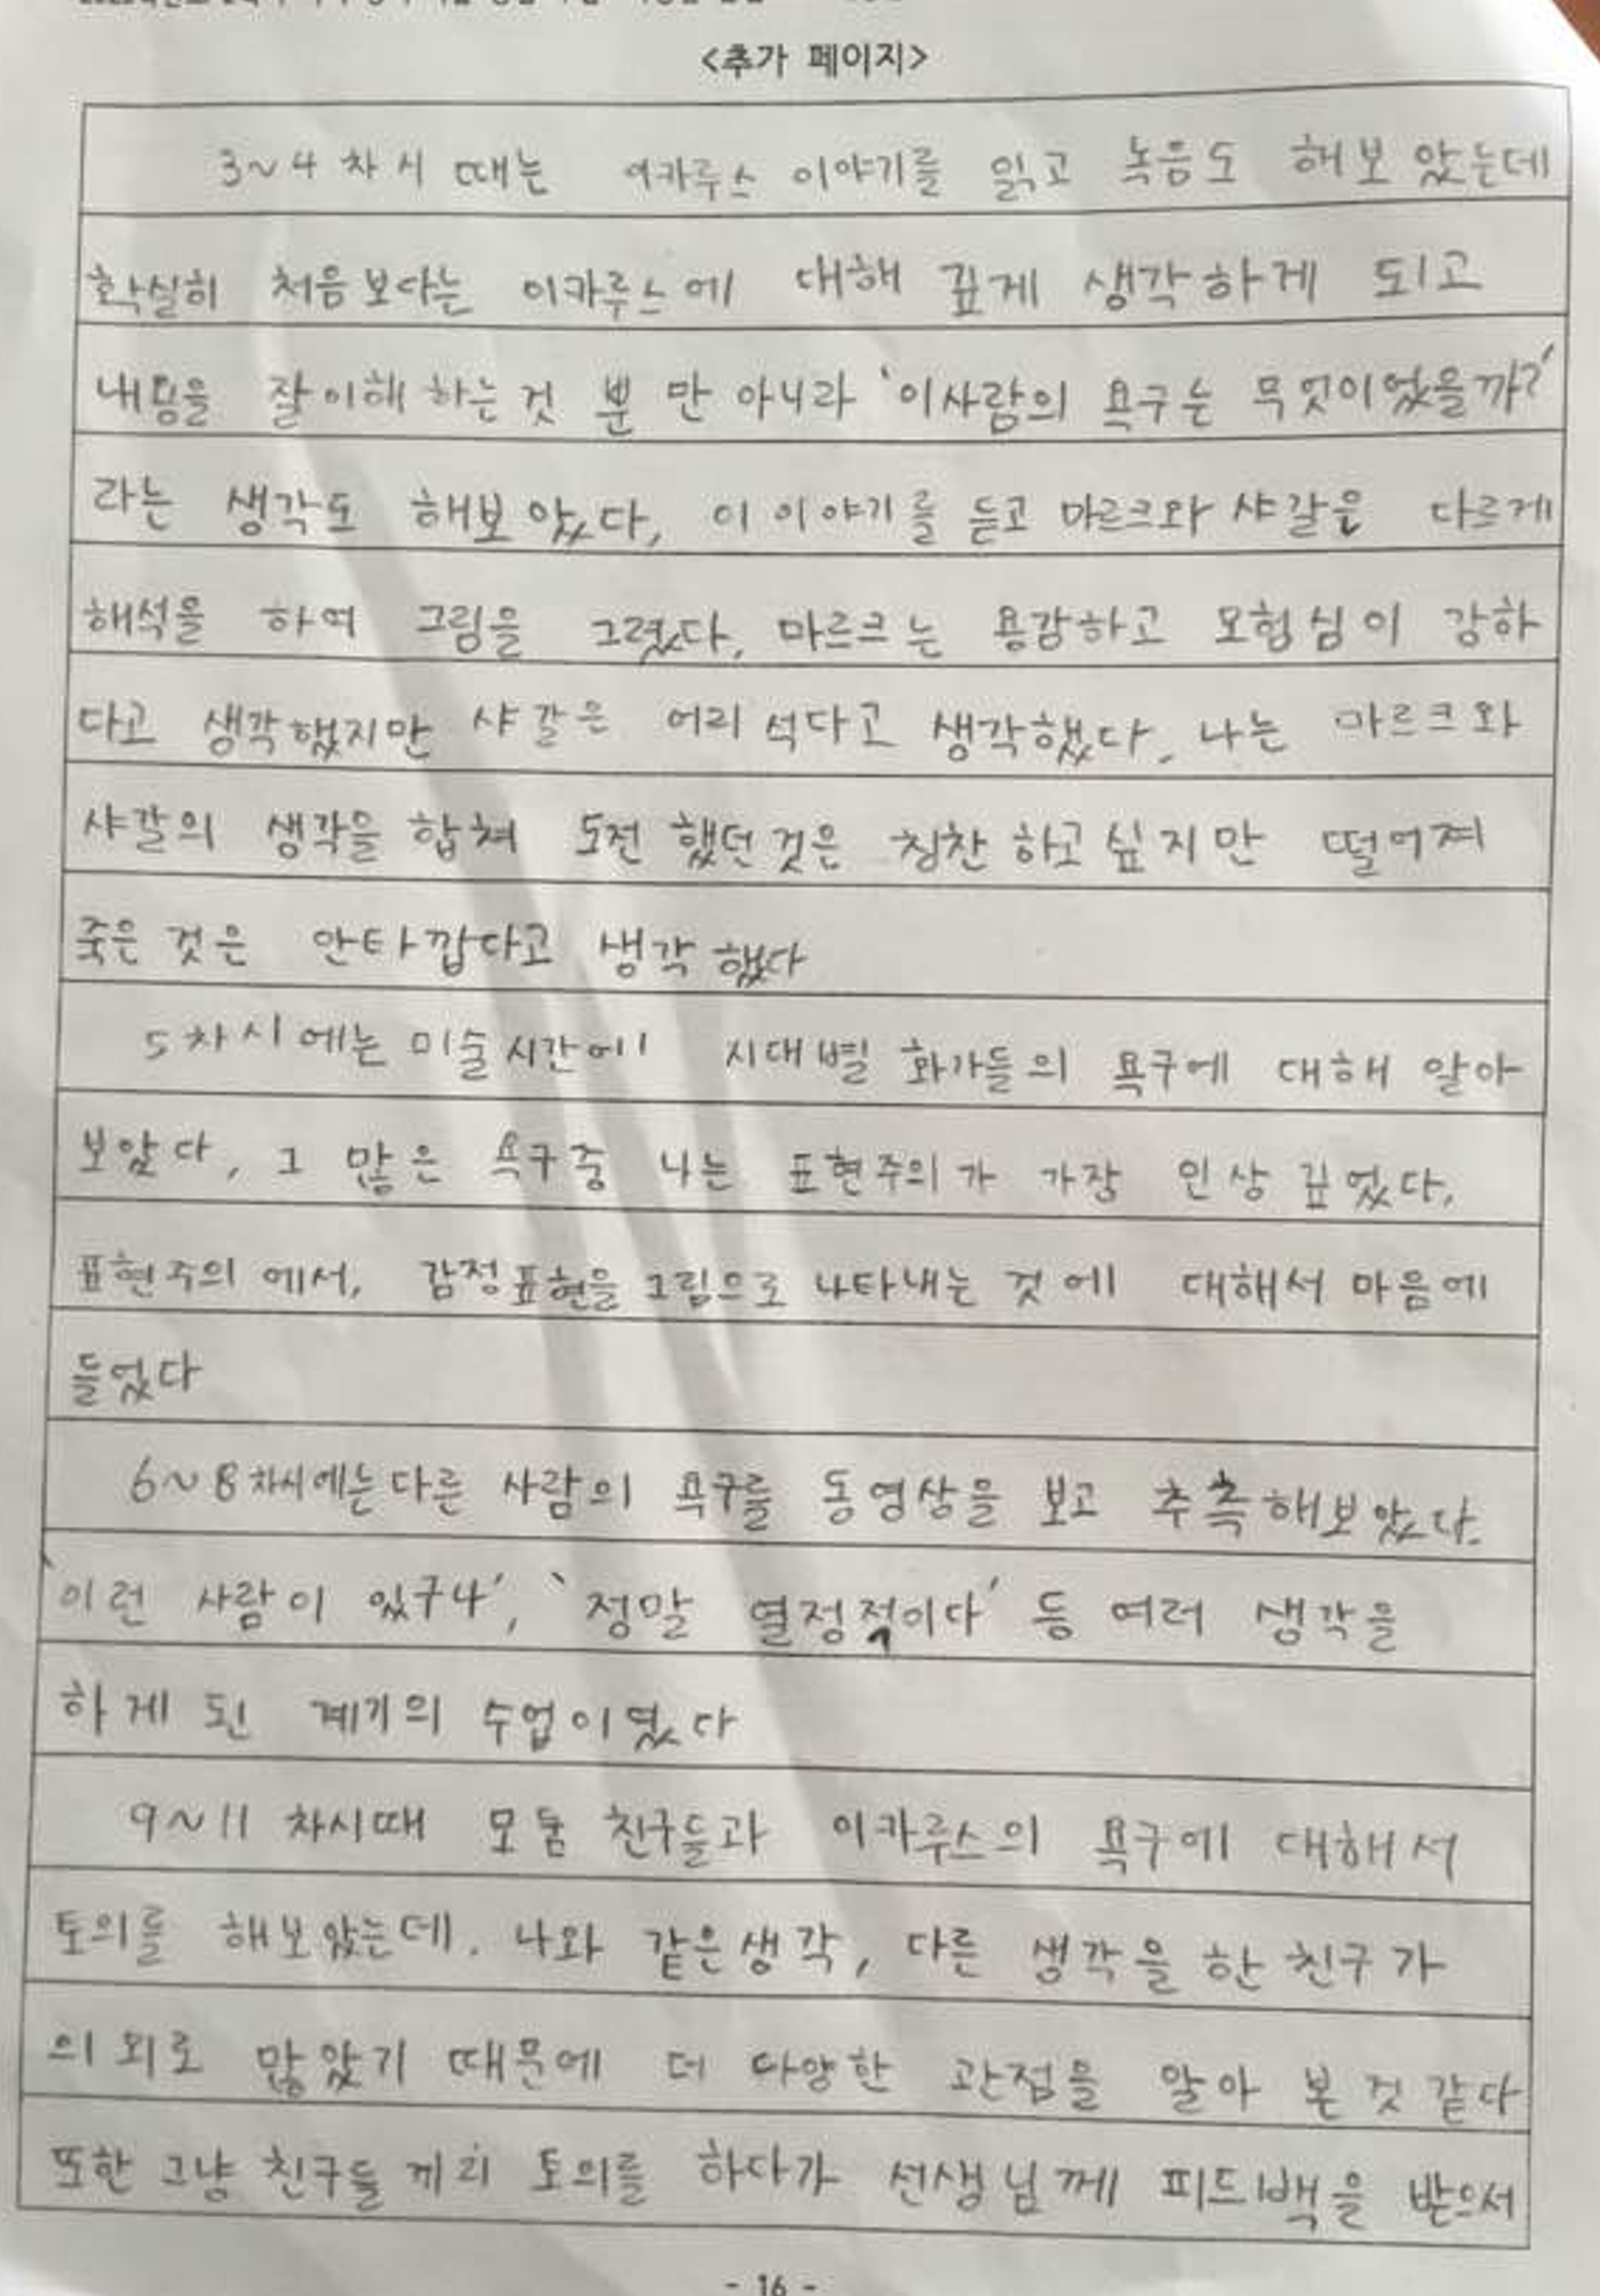 <추가 페이지>
3~4 차시 때는 이카루스 이야기를 읽고 녹음도 해보 았는데
확실히 처음보다는 이카루스에 대해 깊게 생각하게 되고
내용을 잘이해 하는것 뿐 만 아니라 '이사람의 욕구는 무엇이었을까?'
라는 생각도 해보 았다, 이 이야기를 듣고 마르크와 샤갈은 다르게
해석을 하여 그림을 그렸다. 마르크는 용감하고 모험심이 강하
다고 생각했지만 샤갈은 어리석다고 생각했다. 나는 마르크와
샤갈의 생각을 합쳐 도전 했던 것은 칭찬 하고싶지만 떨어져
죽은 것은 안타깝다고 생각 했다
5차시에는 미술시간에 시대별 화가들의 욕구에 대해 알아
보았다, 그 많은 욕구중 나는 표현주의가 가장 인상 깊었다,
표현주의 에서, 감정표현을 그림으로 나타내는 것에 대해서 마음에
들었다
6~8차시에는 다른 사람의 욕구를 동영상을 보고 추측해보았다.
'이런 사람이 있구나', '정말 열정적이다' 등 여러 생각을
하게 된 계기의 수업이였다
9~11 차시때 모둠 친구들과 이카루스의 욕구에 대해서
토의를 해보았는데. 나와 같은생각, 다른 생각을 한 친구가
의외로 많았기 때문에 더 다양한 관점을 알아 본것 같다
또한 그냥 친구들 게리 토의를 하다가 선생님께 피드백을 받으서
- 16 -